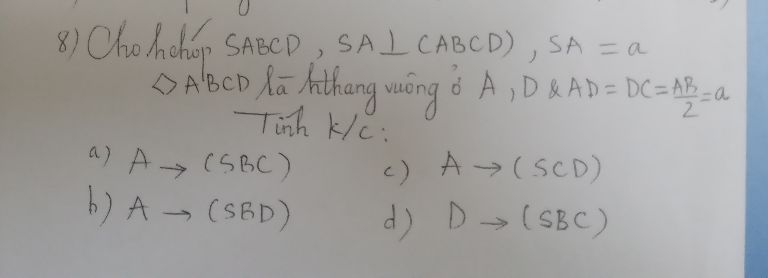 8) Cho hchóp SABCD, SA ⊥ (ABCD), SA = a
◇ABCD là hthang vuông ở A, D & AD = DC = AB/2 = a
Tính k/c:
a) A → (SBC)
c) A → (SCD)
b) A → (SBD)
d) D → (SBC)